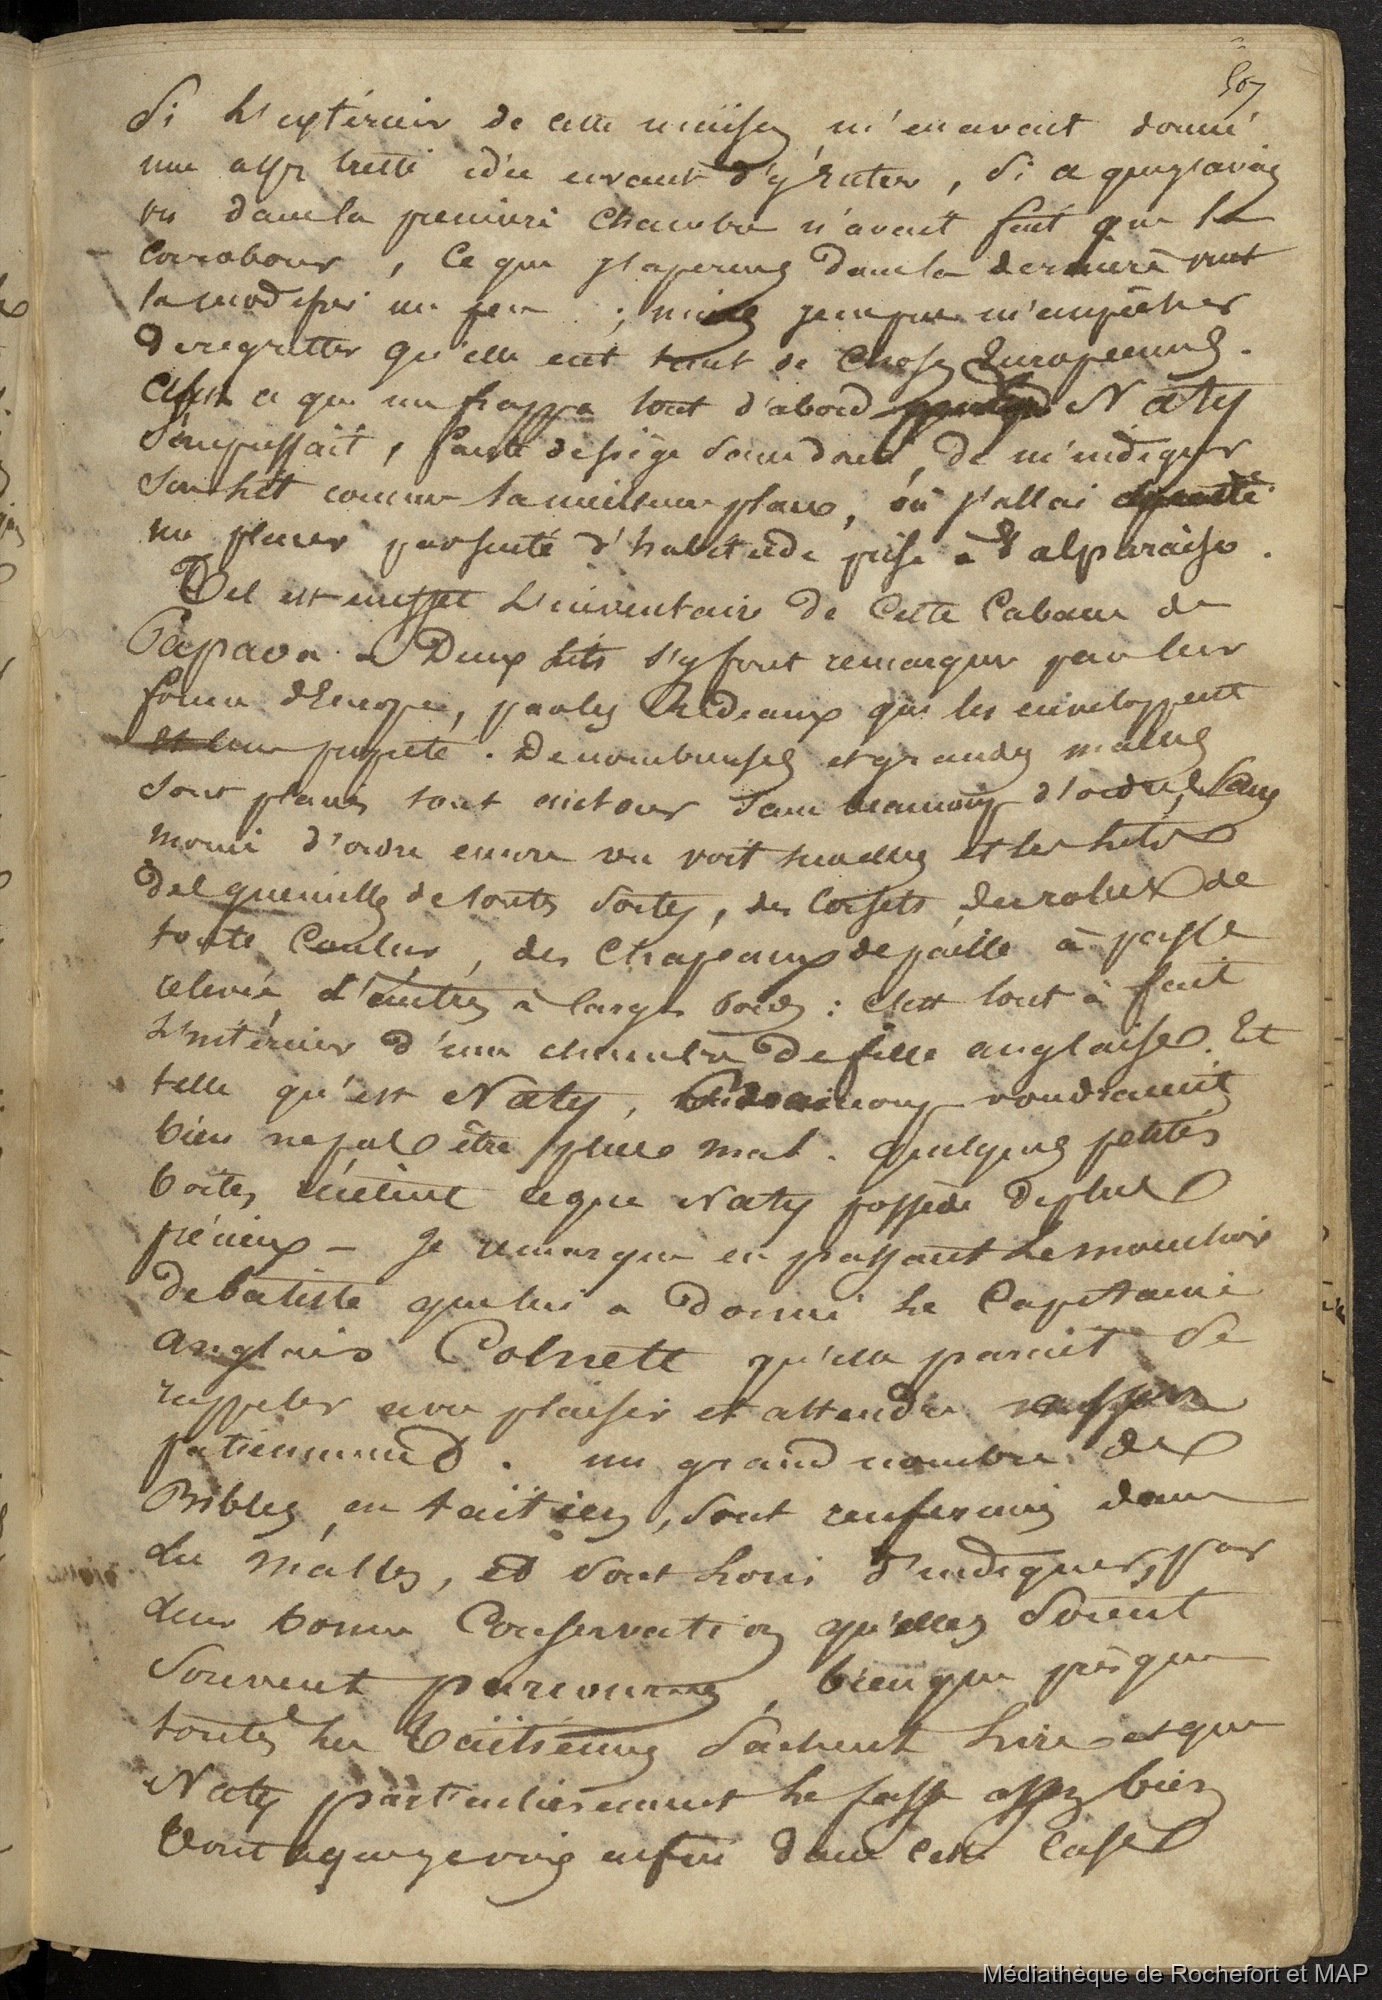 507
Si L'extérieur de cette maison m'en avait donné
une assez triste idée avant d'y Entrer, Si ce que j'avais
vu dans la premiere Chambre n'avait fait que la
Corroborer, Ce que j'aperçus dans la derniere vint
la modifier un peu ; mais je ne pus m'empêcher
de regretter qu'elle eut tant de Choses Européennes.
C'est ce qui me frappa tout d'abord Naty
S'empressait, faute de siège Sans doute, de m'indiquer
Son Lit comme la meilleure place, où j'allai
me placer par suite d'habitude prise à Valparaiso.
Tel est en effet L'inventaire de Cette Cabane de
Papava. Deux Lits S'y font remarquer par leur
forme d'Europe, par les Rideaux qui les enveloppent
et leur propreté. De nombreuses et grandes malles
Sont placées tout autour Sans beaucoup d'ordre, Sans
moins d'ordre encore on voit sur elles et les Lits
des guenilles de toutes Sortes, des Corsets des robes de
toute Couleur, des Chapeaux de paille à passe
relevée, d'autres à larges bords : C'est tout à fait
L'intérieur d'une chambre de fille anglaise. Et
telle qu'est Naty, beaucoup voudraient
bien ne pas être plus mal. Quelques petites
boites, ce que Naty possède de plus
précieux – Je remarque en passant Le mouchoir
de batiste que lui a donné le Capitaine
anglais Colnett qu'elle parait Se
rappeler avec plaisir et attendre
patiemment. un grand nombre de
Bibles en taïtien, Sont renfermées dans
des malles, et Sont Loin d'indiquer, par
leur bonne Conservation qu'elles Soient
Souvent parcourues, bien que presque
toutes les Taïtiennes Sachent Lire et que
Naty particulierement Le fasse assez bien
Tout ce que je vois enfin dans cette Case